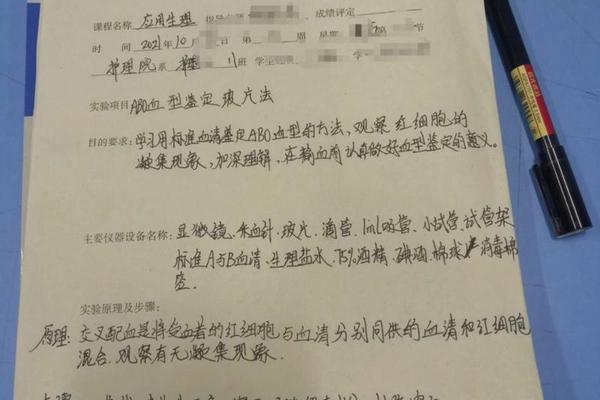 课程名称 应用生理 指导 成绩评定
时 间 2021年10 日 第 周 星期 第 节
护理院系 护理 11班 学生
实验项目 ABO血型鉴定玻片法
目的要求：学习用标准血清鉴定ABO血型的方法，观察红细胞的
凝集现象，加深理解，在输血前认真做好血型鉴定的意义。
主要仪器设备名称：显微镜、采血针、玻片、滴管、1ml吸管、小试管、试管架
标准A与B血清、生理盐水、75%酒精、碘酒、棉球、消毒棉
签。
实验原理及步骤：
原理：交叉配血是将受血者的红细胞与血清分别同供的血清和红细胞
混合，观察有无凝集现象．